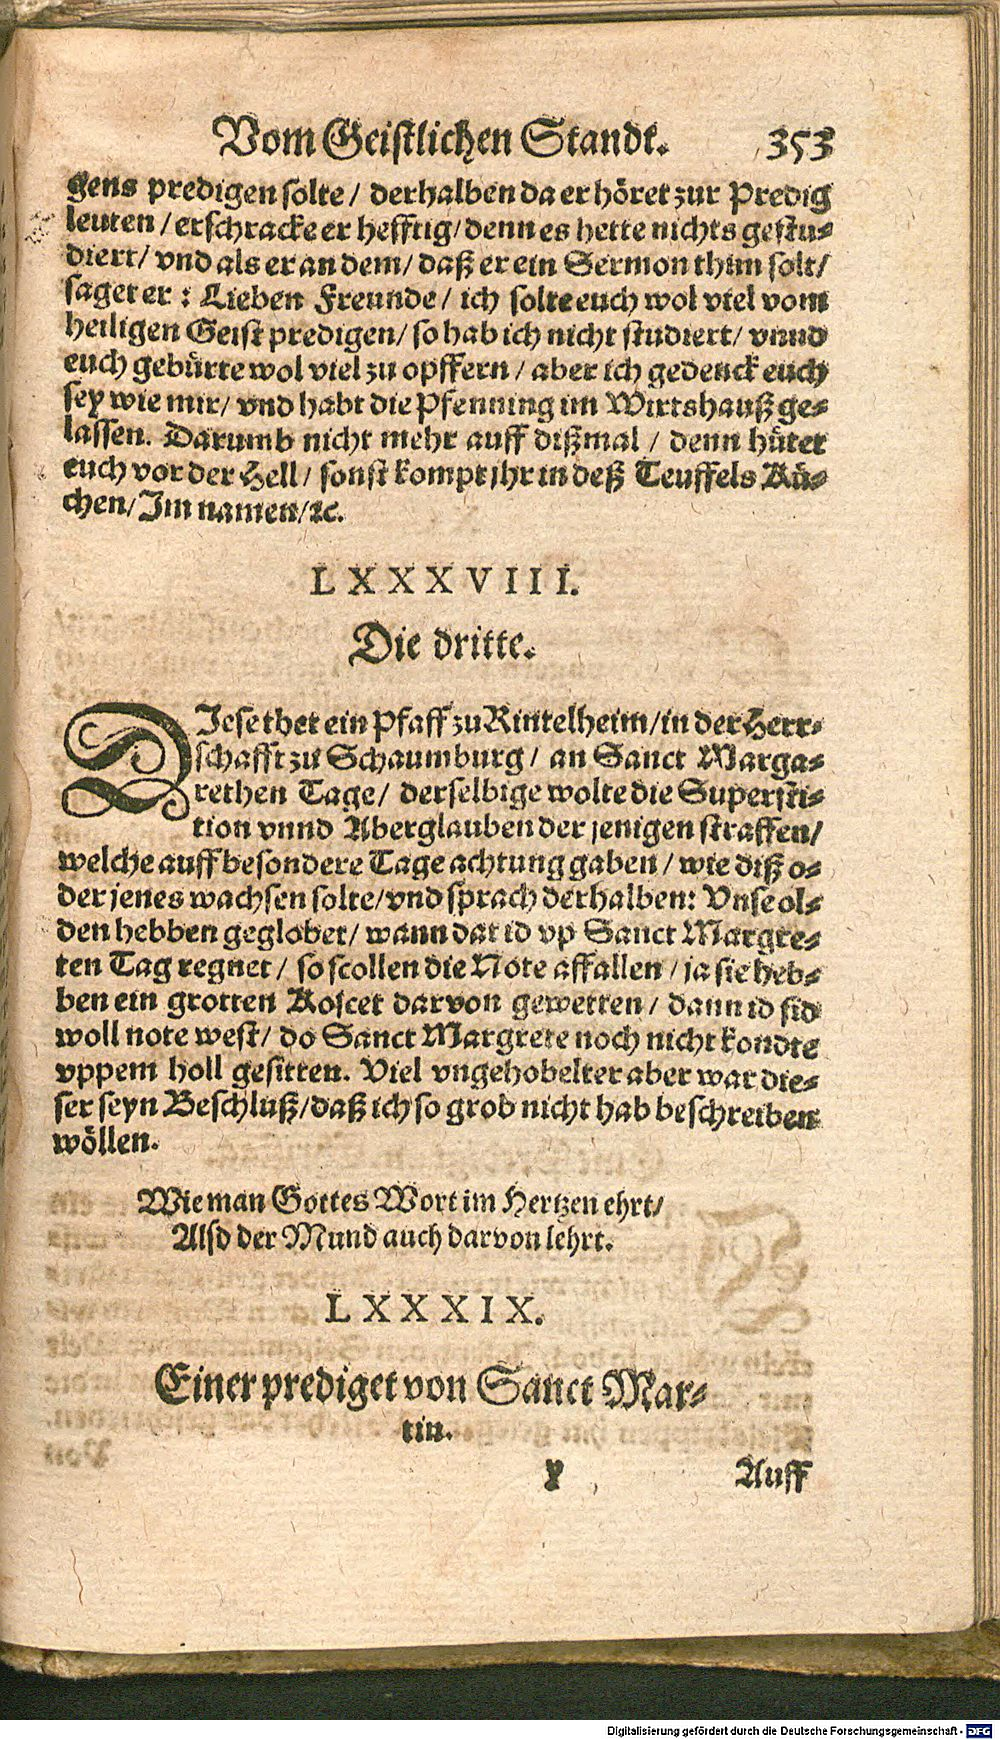 Vom Geistlichen Standt. 353
gens predigen solte / derhalben da er höret zur Predig
leuten / erschracke er hefftig / denn es hette nichts gestu-
diert / vnd als er an dem / daß er ein Sermon thun solt /
saget er : Lieben Freunde / ich solte euch wol viel vom
heiligen Geist predigen / so hab ich nicht studiert / vnnd
euch gebürte wol viel zu opffern / aber ich gedenck euch
sey wie mir / vnd habt die Pfenning im Wirtshauß ge-
lassen. Darumb nicht mehr auff dißmal / denn hütet
euch vor der Hell / sonst kompt jhr in deß Teuffels Kü-
chen / Im namen / ꝛc.
LXXXVIII.
Die dritte.
DIese thet ein Pfaff zu Rintelheim / in der Herr-
schafft zu Schaumburg / an Sanct Marga-
rethen Tage / derselbige wolte die Supersti-
tion vnnd Aberglauben der jenigen straffen /
welche auff besondere Tage achtung gaben / wie diß o-
der jenes wachsen solte / vnd sprach derhalben: Vnse ol-
den hebben geglobet / wann dat id vp Sanct Margre-
ten Tag regnet / so scollen die Note affallen / ja sie heb-
ben ein grotten Koscet darvon gewetten / dann id sid
woll note west / do Sanct Margrete noch nicht kondte
vppem holl gesitten. Viel vngehobelter aber war die-
ser seyn Beschluß / daß ich so grob nicht hab beschreiben
wöllen.
Wie man Gottes Wort im Hertzen ehrt /
Also der Mund auch darvon lehrt.
LXXXIX.
Einer prediget von Sanct Mar-
tin.
Y Auff
Digitalisierung gefördert durch die Deutsche Forschungsgemeinschaft - DFG